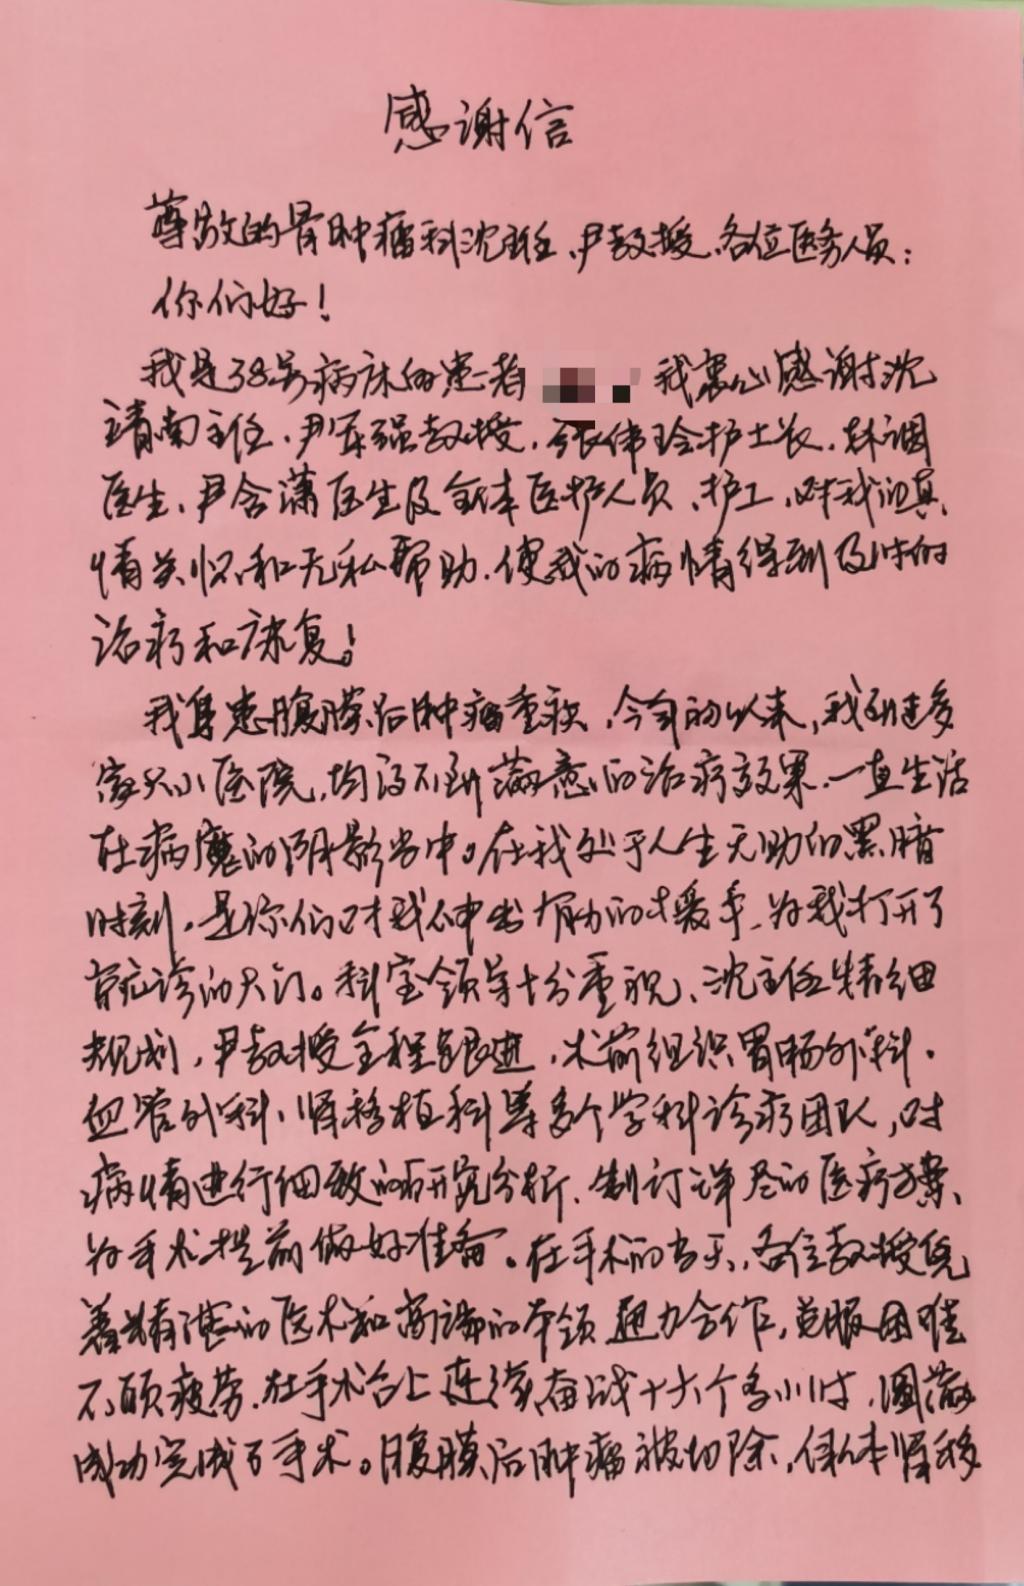 感谢信
尊敬的骨肿瘤科沈主任、尹教授、各位医务人员：
你们好！
我是38号病床的患者 我衷心感谢沈
靖南主任、尹军强教授、张伟玲护士长、林调
医生、尹含潇医生及全体医护人员、护工，对我的真
情关怀和无私帮助，使我的病情得到及时的
治疗和康复！
我身患腹膜后肿瘤重疾，今年初以来，我辗进多
家大小医院，均得不到满意的治疗效果，一直生活
在病魔的阴影当中。在我处于人生无助的黑暗
时刻，是你们对我伸出有力的援手，为我打开了
诊的大门。科室领导十分重视、沈主任精细
规划，尹教授全程跟进，术前组织胃肠外科、
血管外科、肾移植科等多个学科诊疗团队，对
病情进行细致的研究分析、制订详尽的医疗方案、
为手术提前做好准备。在手术的当天，各位教授凭
着精湛的医术和高端的本领通力合作，克服困难
不顾疲劳，在手术台上连续奋战十六个多小时，圆满
成功完成了手术。腹膜后肿瘤被切除，保本肾移